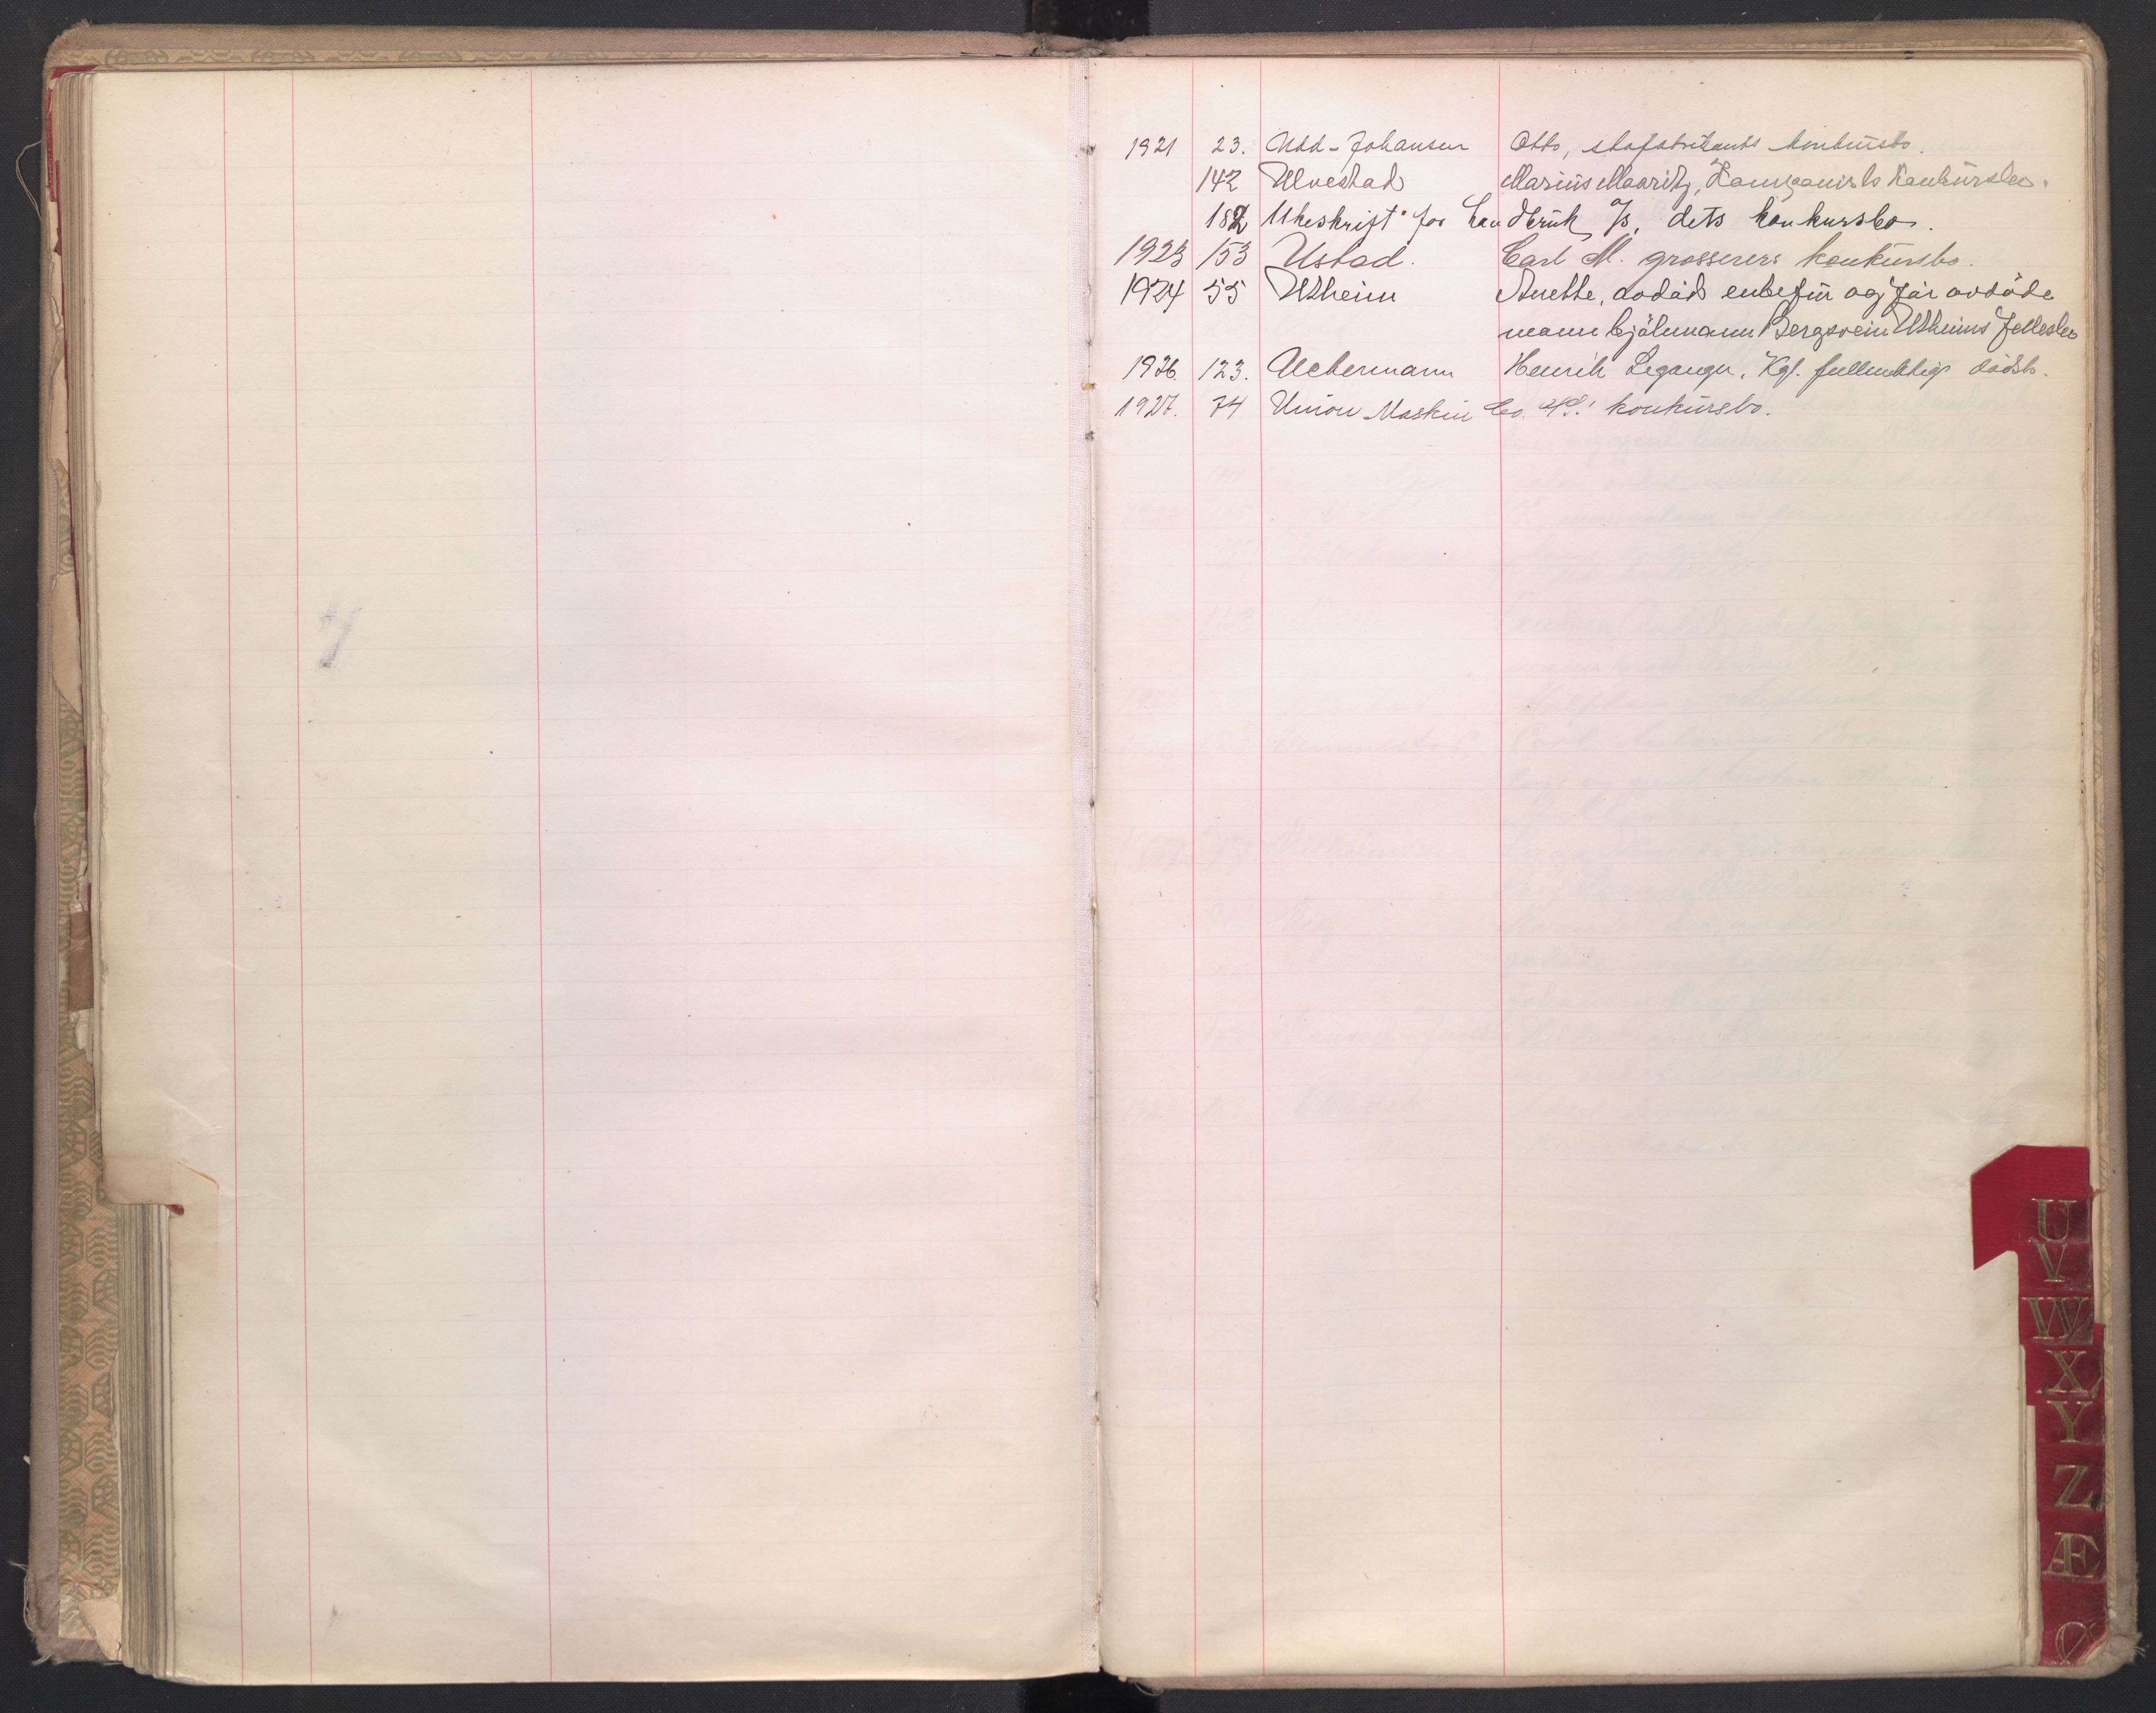 1921 23. Udd-Johansen Otto, skofabrikants konkursbo.
142 Ulvestad Marius Mauritz, konkursbo.
182 Ukeskrift for Landbruk A/s, dets konkursbo.
1923 153 Ustad. Carl M. grosserers konkursbo.
1924 55 Utheim Anette, avdöd enkefru og før avdöde
mann Bergsvein Utheims fellesbo
1926. 123. Uchermann Henrik Leganger, Kgl. fullmektig dödsb.
1927. 74 Union Maskin Co. A/S! konkursbo.
U
V
W
X
Y
Z
Æ
Ø